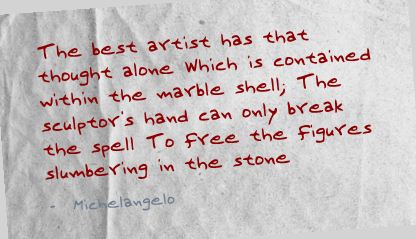 The best artist has that
thought alone Which is contained
within the marble shell; The
sculptor's hand can only break
the spell To free the figures
slumbering in the stone
- Michelangelo